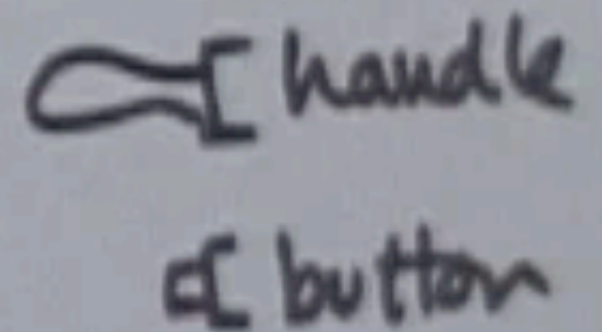 handle
button